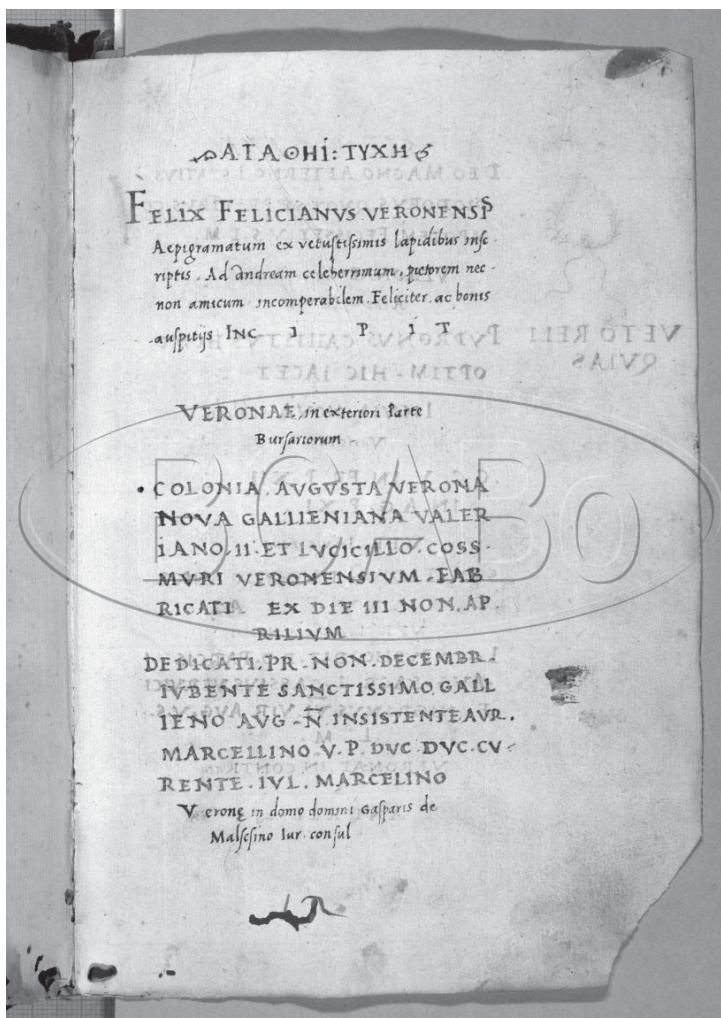 ΑΓΑΘΗΙ: ΤΥΧΗ
FELIX FELICIANVS VERONENSIS
Aepigramatum ex vetustissimis lapidibus insc
riptis. Ad andream celeberrimum. pictorem nec
non amicum incomperabilem. Feliciter. ac bonis
auspitijs INC I P I T
VERONAE, in exteriori Parte
Bursariorum
• COLONIA. AVGVSTA VERONA
NOVA GALLIENIANA VALER
IANO. II. ET LVCICILLO. COSS.
MVRI VERONENSIVM. FAB
RICATI EX DIE III NON. AP
RILIVM
DEDICATI. PR. NON. DECEMBR.
IVBENTE SANCTISSIMO GALL
IENO AVG. N. INSISTENTE AVR.
MARCELLINO V. P. DVC DVC. CV
RENTE. IVL. MARCELINO
Veronę in domo domini Gasparis de
Malsesino Iur. consul
BCABo
VETO RELI
QVIAS